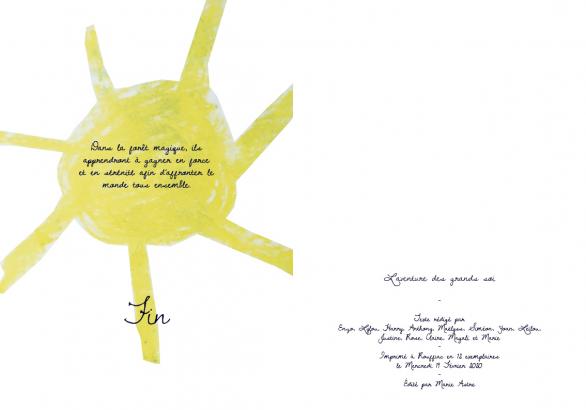 Dans la forêt magique, ils
apprendront à gagner en force
et en sérénité afin d'affronter le
monde tous ensemble.
Fin
L'aventure des grands soi
-
Texte rédigé par
Enzo, Harry, Anthony, Maëlyss, Siméon, Yoan,
Justine, Rose, Magali et Marie
-
Imprimé à Rouffins en 12 exemplaires
le Mercredi 19 Février 2020
-
Édité par Marie